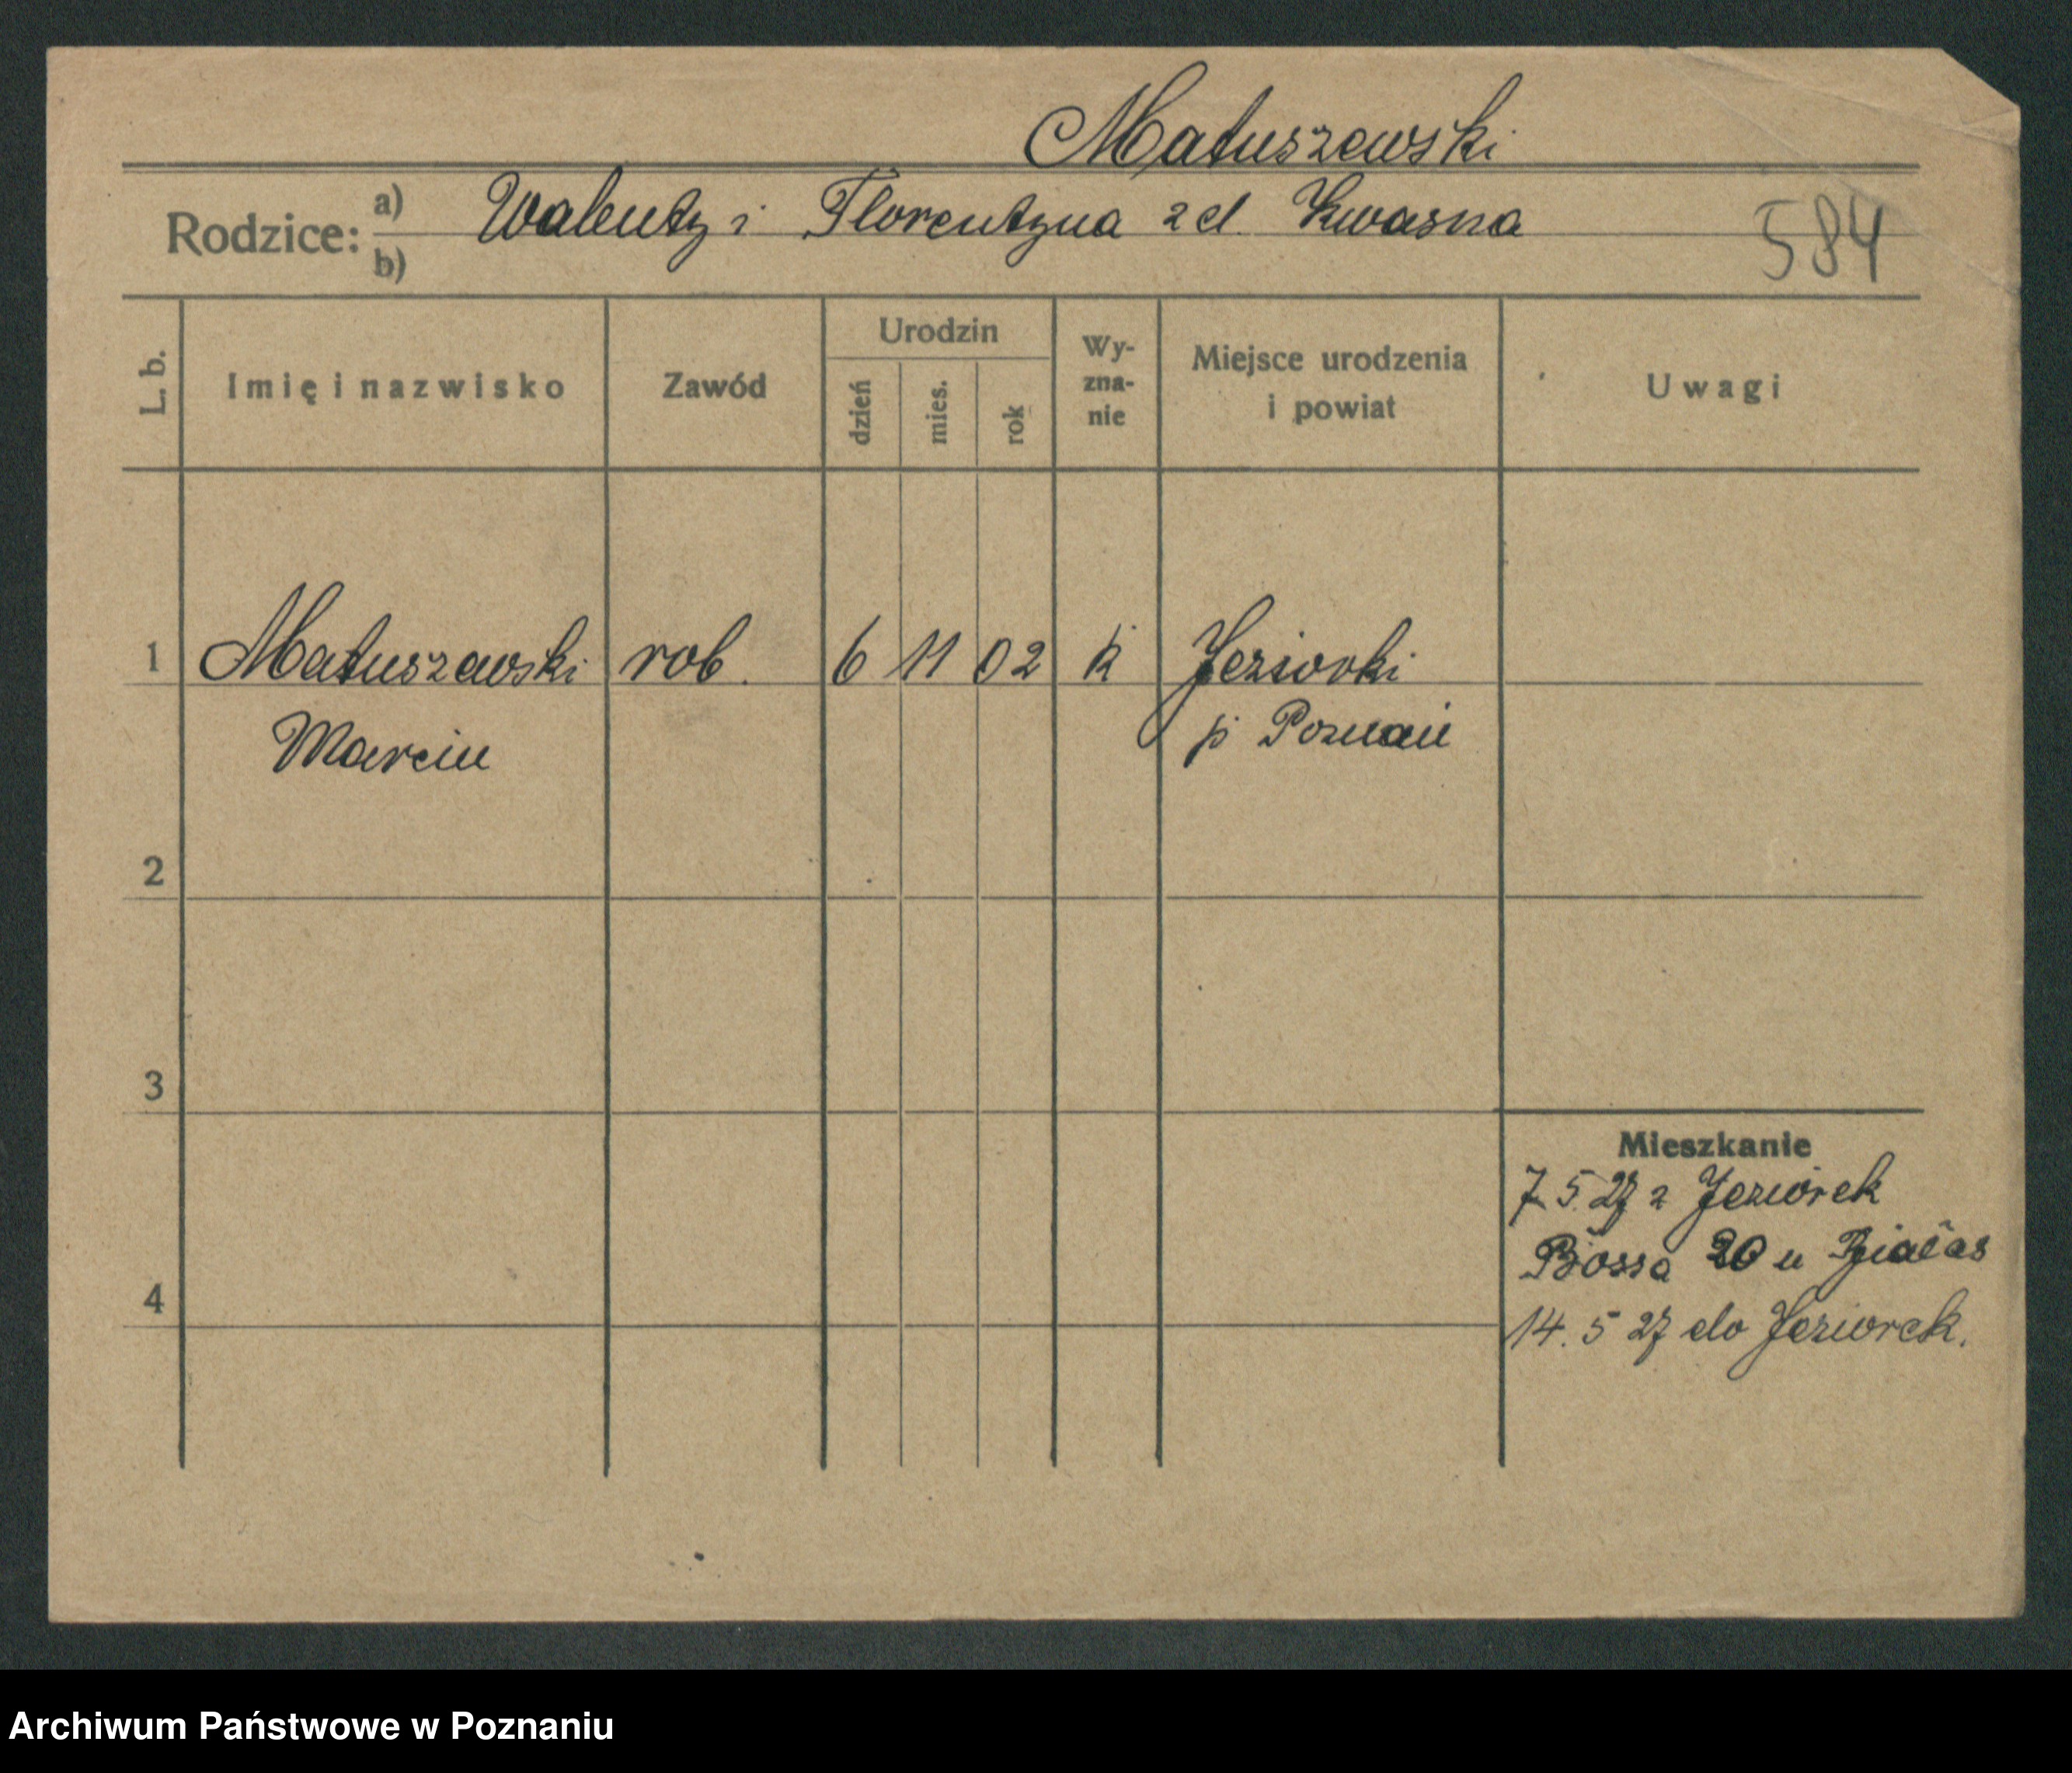 Matuszewski
Rodzice: a) b) Walenty i Florentyna z d. Kwasna
584
L. b.
Imię i nazwisko
Zawód
Urodzin
dzień
mies.
rok
Wy-
zna-
nie
Miejsce urodzenia
i powiat
Uwagi
1 Matuszewski rob. 6 11 02 k Jeziorki
Marcin p Poznań
2
3
Mieszkanie
7.5.27 z Jeziórek
20 u
4
14.5 27 do Jeziorek.
Archiwum Państwowe w Poznaniu